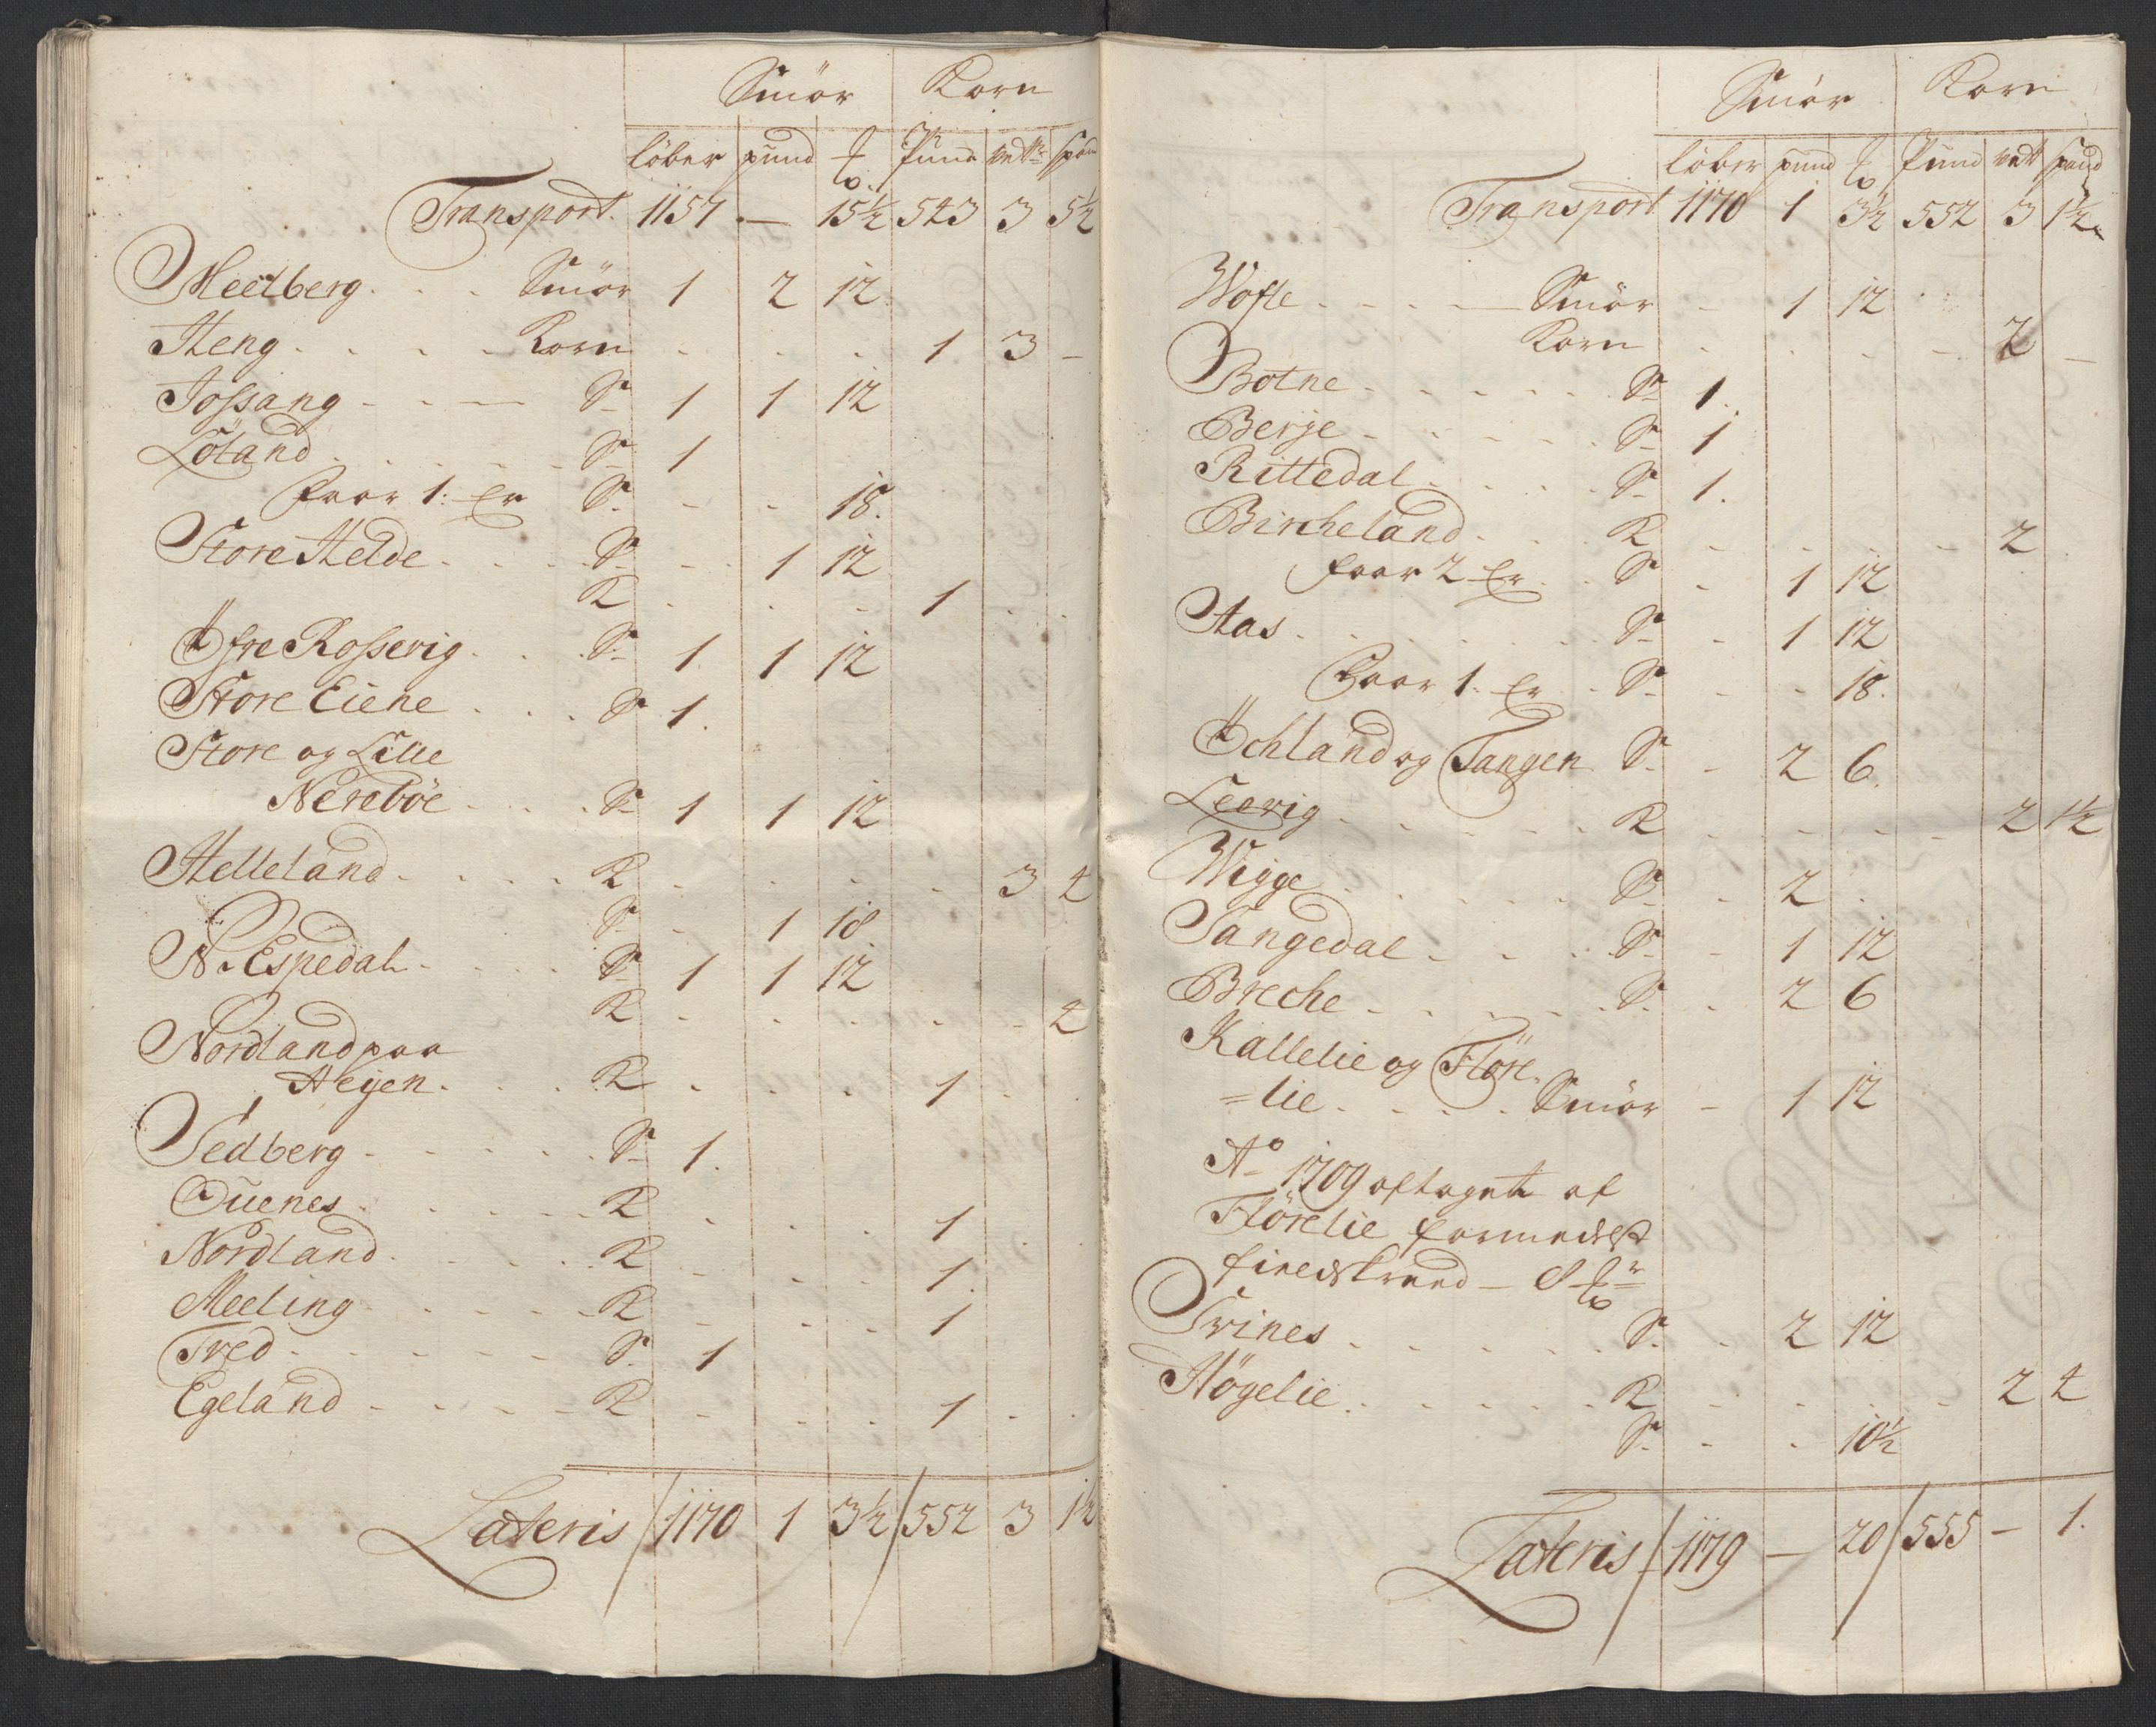 Smör Korn
löber pund ℔. Pund vett: spand
Transport. 1157 — 15½ 543 3 5½
Meelberg. . . Smör 1 2 12
Heng . . . . Korn . . . 1 3 –
Jossang - - — S. 1 1 12
Löland . . . . . S. 1
foor 1. Er S. - - 18.
Store Helde . . . . S. - 1 12
K . . . 1 . .
Öfre Rosserig . . . S. 1 1 12
Store Eiene . . . S. 1.
Store og Lille
Nereböe . . . S. 1 1 12
Helleland . . . . K . . . . 3 4
S. - 1 18
N. Espedal . . . . S. 1 1 12
K . . . . - 4
Nordland paa
Heyen . . . K . . . 1 . .
Sedberg . . . . . S. 1.
Duenes . . . . . K . . . 1 . .
Nordland . . . . K - . . 1.
Meeling . . . . . K - . . 1
Tved . . . . . S. 1
Egeland . . . . K . . . 1 . .
Lateris / 1170 1 3½ / 552 3 1½
Smör Korn
löber pund ℔ Pund vett spand
Transport 1170 1 3½ 552 3 1½
Wofle . . . — Smör - 1 12
Korn . . . - 2 –
Botne . . . . . . S. 1.
Berje . . . . . . S. 1
Rittedal . . . . S. 1.
Bircheland . . . K - . . - 2
foor 2 Er . . S. - 1 12
Aas . . . . . . . S. - 1 12
Foor 1. Er . . S. - - 18.
Öchland og Tangen S. - 2 6.
Leervig . . . . . . K . . . - 2 1½
Wigge . . . . . . S. - 2 .
Tangedal . . . . S. - 1 12
Breche . . . . . . S. - 2 6
Kallelie og Flöre
=lie . . . . . Smör - 1 12
Ao 1709 aftaget af
Flörelie formedelst
- 8 ℔r
Svines . . . . . . S. - 2 12
Högelie . . . . . . K - . . - 2 4
S. - - 10½
Lateris / 1179 — 20 / 555 – 1.